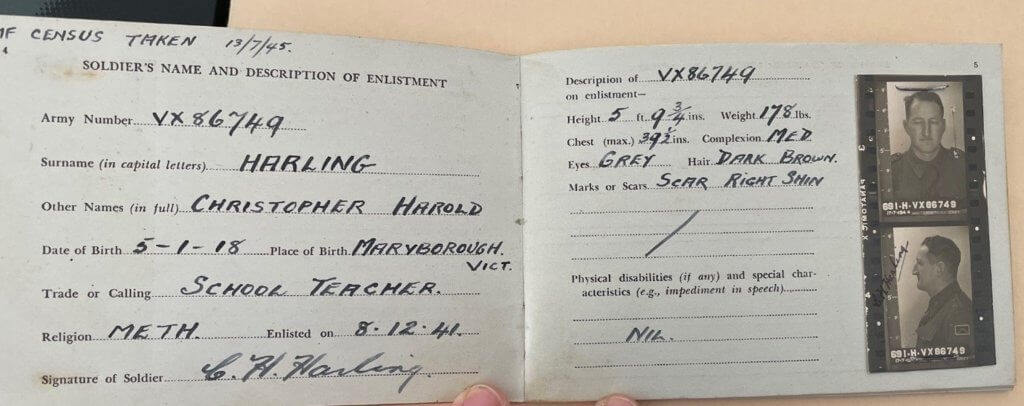 MF CENSUS TAKEN 13/7/45.
4
SOLDIER'S NAME AND DESCRIPTION OF ENLISTMENT
Army Number VX86749
Surname (in capital letters) HARLING
Other Names (in full) CHRISTOPHER HAROLD
Date of Birth 5-1-18 Place of Birth MARYBOROUGH. VICT.
Trade or Calling SCHOOL TEACHER.
Religion METH. Enlisted on 8.12.41.
Signature of Soldier C. H. Harling.
5
Description of VX86749
on enlistment—
Height 5 ft. 9 3/4 ins. Weight 178 lbs.
Chest (max.) 39 1/2 ins. Complexion MED
Eyes GREY Hair DARK BROWN.
Marks or Scars SCAR RIGHT SHIN
Physical disabilities (if any) and special char-
acteristics (e.g., impediment in speech)
NIL.
PANATOMIC X
691-H-VX86749
C H Harling
691-H-VX86749